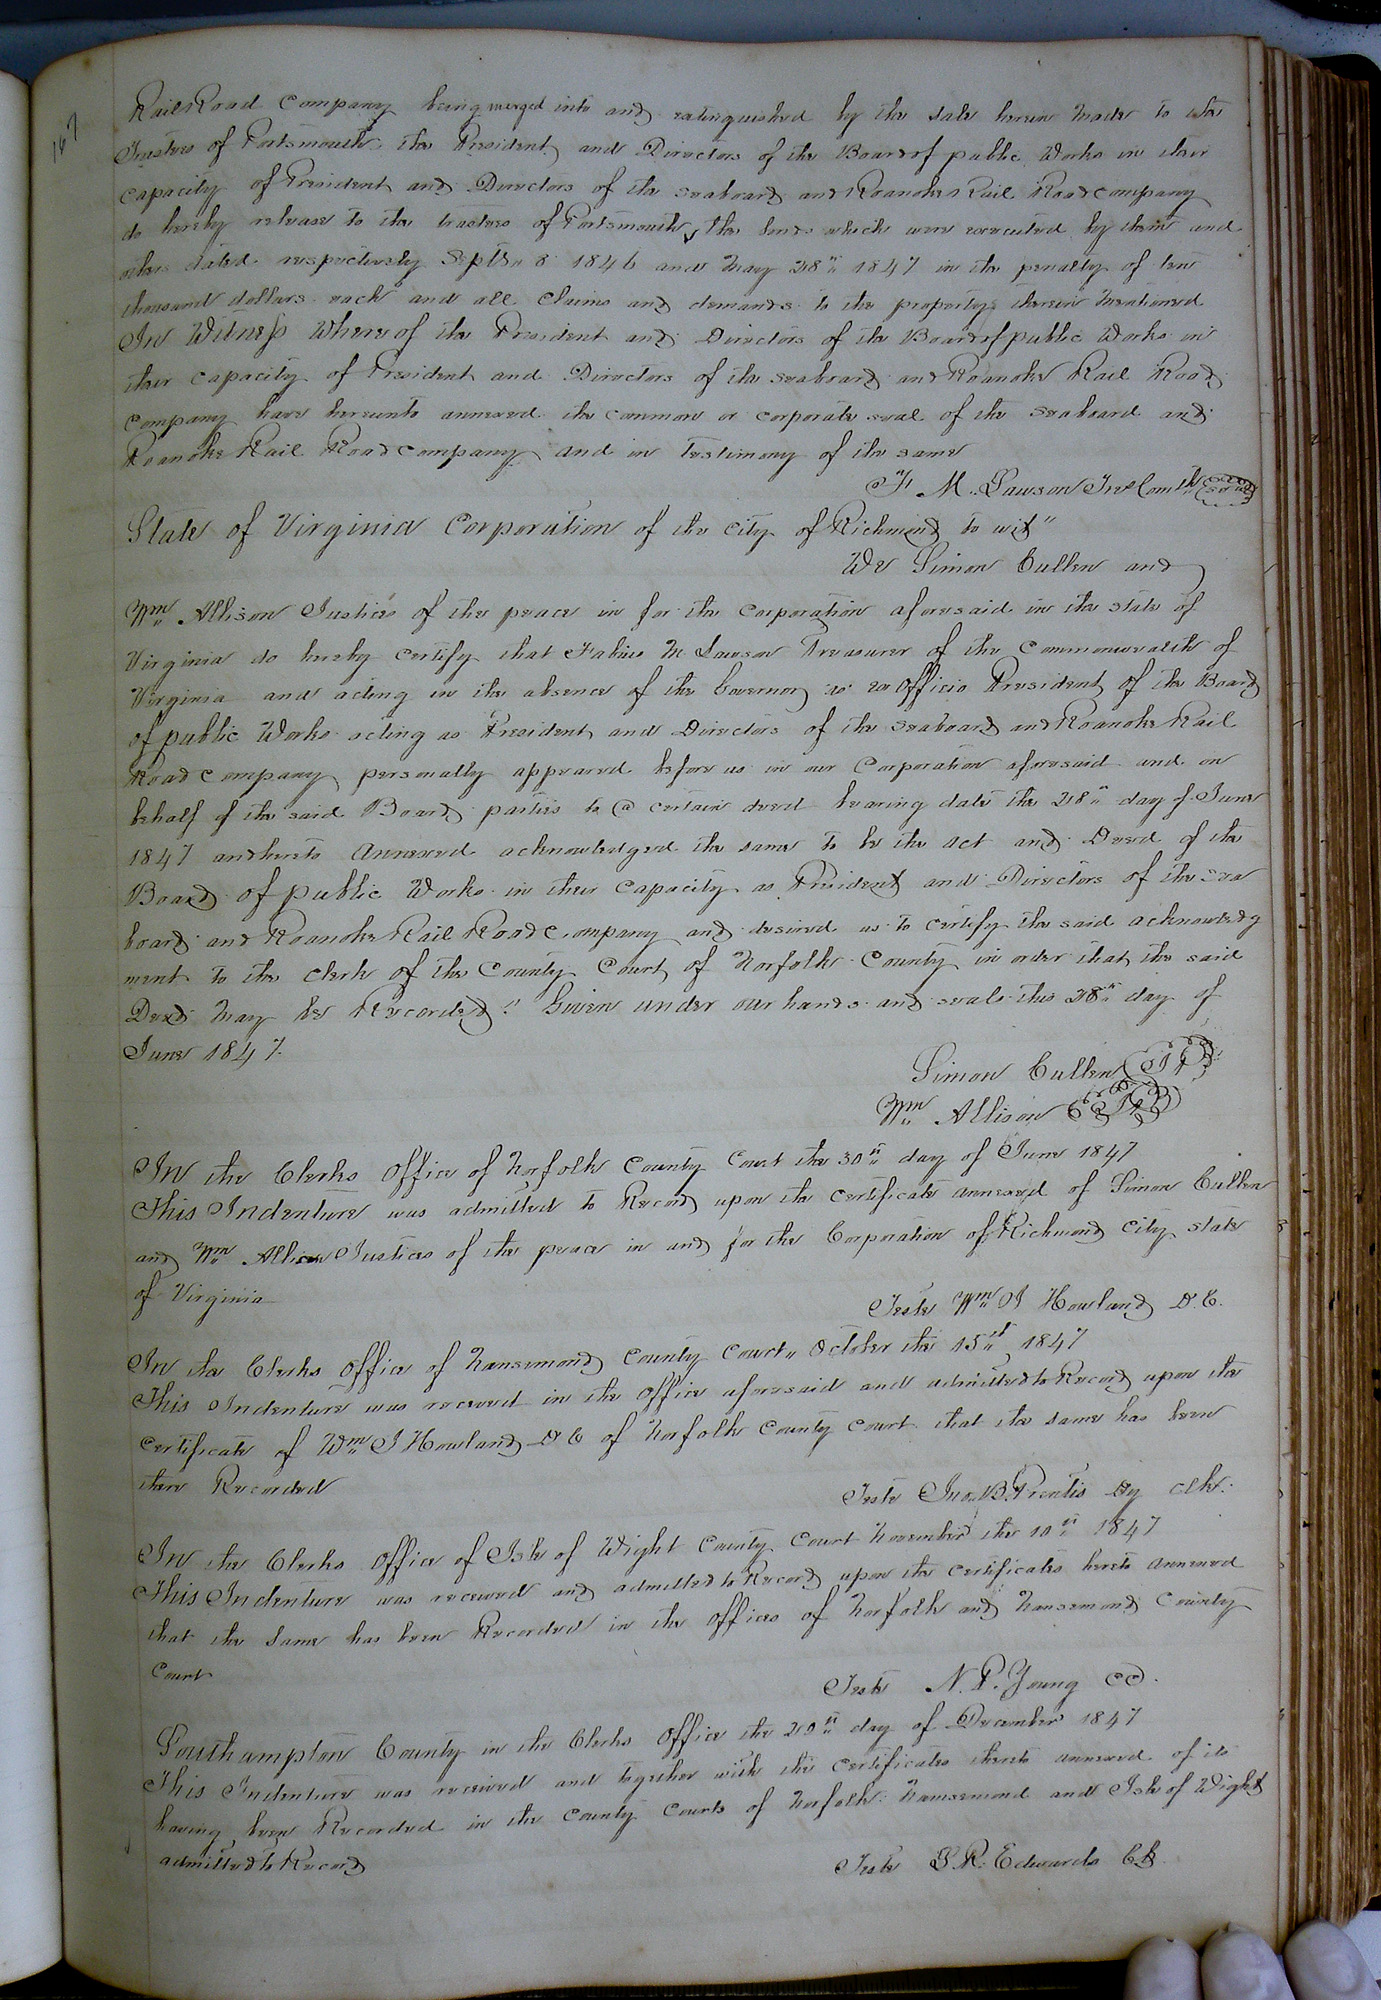 167
Rail Road Company being merged into and relinquished by the sale herein made to the
Trustees of Portsmouth the President and Directors of the Board of public Works in their
capacity of President and Directors of the seaboard and Roanoke Rail Road company
do hereby release to the trustees of Portsmouth the bonds which were executed by them and
others dated respectively Septbr 8 1846 and May 28th 1847 in the penalty of ten
thousand dollars each and all claims and demands to the property therein mentioned
In Witness Where of the President and Directors of the Board of public Works in
their capacity of President and Directors of the seaboard and Roanoke Rail Road
company have hereunto annexed the common or corporate seal of the seaboard and
Roanoke Rail Road company and in Testimony of the same
F M. Lawson Tre Comth seal
State of Virginia Corporation of the city of Richmond to wit"
We Simon Cullen and
Wm Allison Justices of the peace in for the corporation aforesaid in the state of
Virginia do hereby certify that Fabius M Lawson Treasurer of the Commonwealth of
Virginia and acting in the absence of the Governor as ex officio President of the Board
of public Works acting as President and Directors of the seaboard and Roanoke Rail
Road company personally appeared before us in our Corporation aforesaid and on
behalf of the said Board parties to a certain deed bearing date the 28th day of June
1847 and hereto annexed acknowledged the same to be the act and Deed of the
Board of public Works in their capacity as President and Directors of the sea
board and Roanoke Rail Road Company and desired us to certify the said acknowledg
ment to the clerk of the County Court of Norfolk County in order that the said
Deed may be Recorded" Given under our hands and seals this 28th day of
June 1847.
Simon Cullen
Wm Allison
In the Clerks Office of Norfolk County Court the 30th day of June 1847
This Indenture was admitted to Record upon the certificate annexed of Simon Cullen
and Wm Allison Justices of the peace in and for the Corporation of Richmond City state
of Virginia
Teste Wm J Howland D.C.
In the Clerks Office of Nansemond County Court October the 15th 1847
This Indenture was received in the Office aforesaid and admitted to Record upon the
certificate of Wm J Howland D C of Norfolk County Court that the same has been
there Recorded
Teste Jno. B. Prentis Dy clk.
In the Clerks Office of Isle of Wight County Court November the 10th 1847
This Indenture was received and admitted to Record upon the certificates hereto annexed
that the same has been Recorded in the Offices of Norfolk and Nansemond County
Court
Teste N. P. Young CC.
Southampton County in the Clerks Office the 20th day of December 1847
This Indenture was received and together with the certificates thereto annexed of its
having been Recorded in the County Courts of Norfolk Nansemond and Isle of Wight
admitted to Record
Teste L R. Edwards Ck.